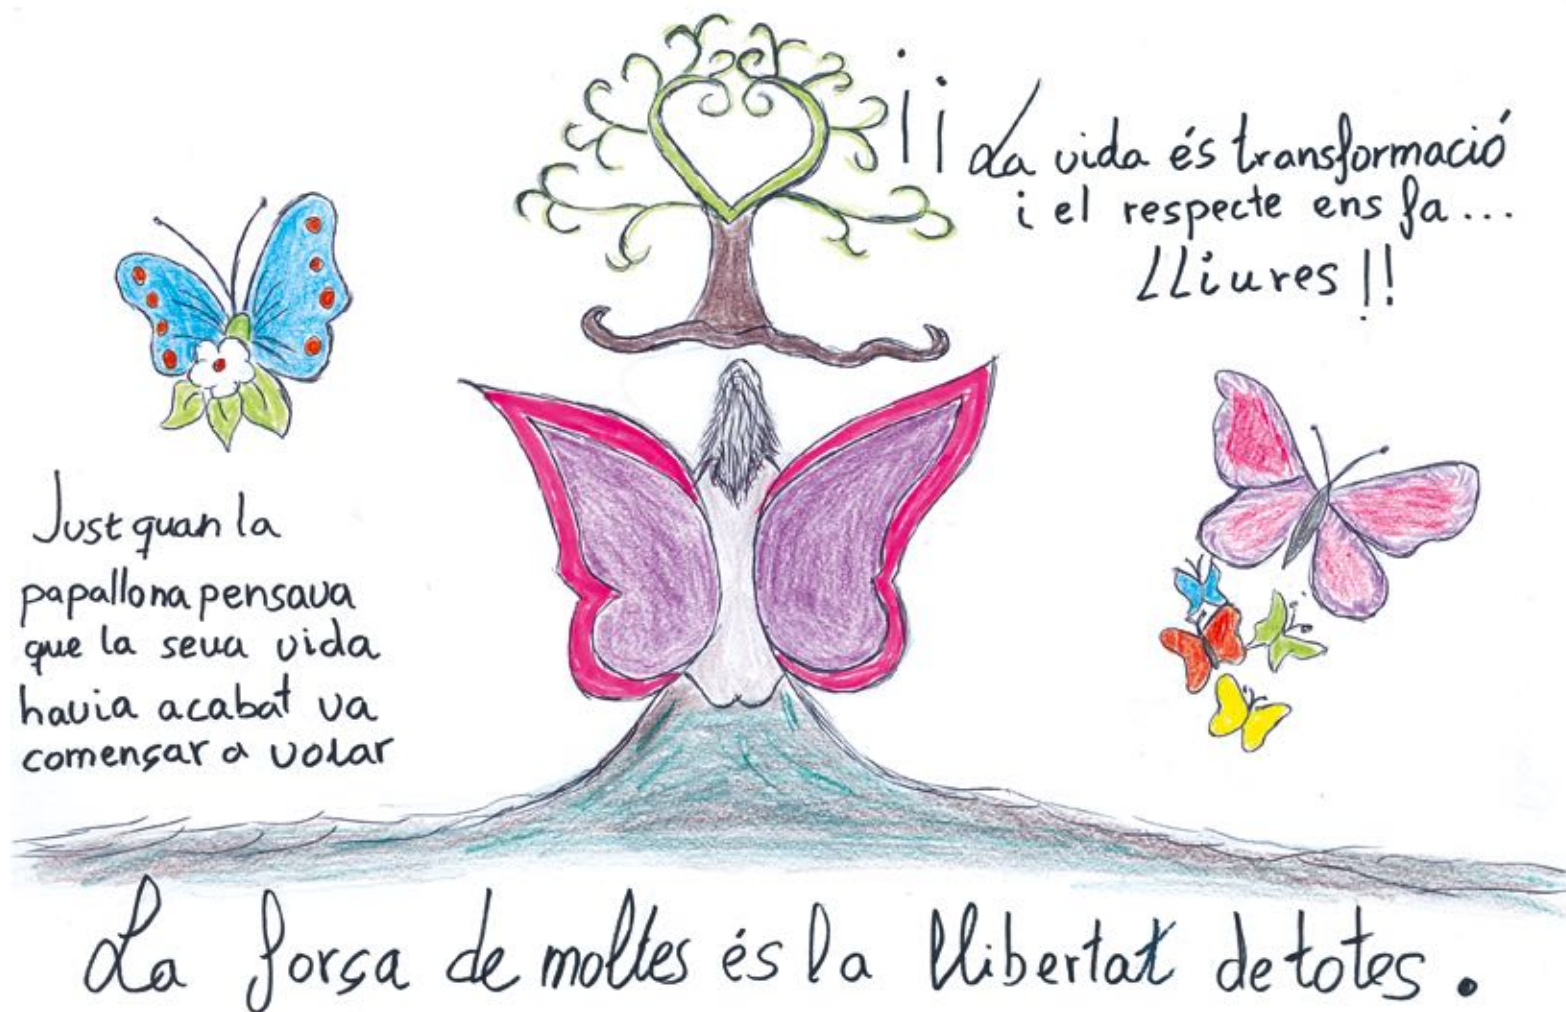 ¡¡ La vida és transformació
i el respecte ens fa...
LLiures !!
Just quan la
papallona pensava
que la seua vida
havia acabat va
començar a volar
La força de moltes és la llibertat de totes.